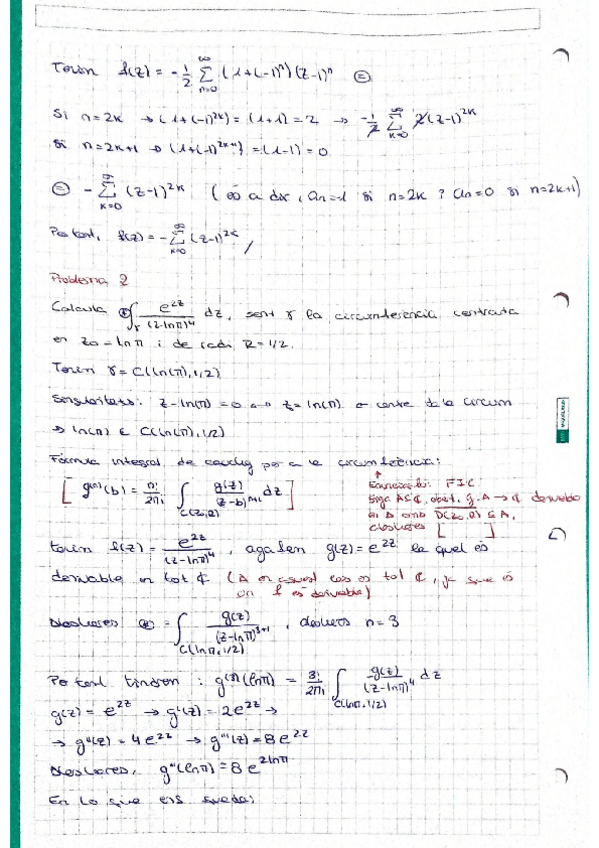 Tenim f(z) = -1/2 ∑_{n=0}^{∞} (1+(-1)^n)(z-1)^n =
Si n=2k → (1+(-1)^{2k}) = (1+1) = 2 → -1/2 ∑_{k=0}^{∞} 2(z-1)^{2k}
Si n=2k+1 → (1+(-1)^{2k+1}) = (1-1) = 0
= -∑_{k=0}^{∞} (z-1)^{2k} (és a dir, an=-1 si n=2k ? an=0 si n=2k+1)
Per tant, f(z) = -∑_{k=0}^{∞} (z-1)^{2k}
Problema 2
Calcula ∫_γ e^{2z}/(z-lnπ)^4 dz, sent γ la circumferència centrada
en z0=lnπ i de radi R=1/2.
Tenim γ=C(ln(π),1/2)
Singularitats: z-ln(π)=0 z=ln(π) centre de la circum
⇒ ln(π) ∈ C(ln(π),1/2)
Fórmula integral de cauchy per a la circumferència:
[ g^{(n)}(b) = n!/2πi ∫_{C(z0,R)} g(z)/(z-b)^{n+1} dz ]
Enunciado: FIC
Siga A⊆¢, obert, g:A→¢ derivable
en A amb D(z0,R)⊆A,
aleshores [ ]
tenim f(z) = e^{2z}/(z-lnπ)^4, agafem g(z)=e^{2z} la qual és
derivable en tot ¢ (A en aquest cas es tot ¢, ja que és
on f es derivable)
Aleshores = ∫_{C(lnπ,1/2)} g(z)/(z-lnπ)^{3+1}, n=3
Per tant tindrem: g^{(3)}(lnπ) = 3!/2πi ∫_{C(lnπ,1/2)} g(z)/(z-lnπ)^4 dz
g(z)=e^{2z} → g'(z)=2e^{2z} →
→ g''(z)=4e^{2z} → g'''(z)=8e^{2z}
Aleshores, g'''(lnπ)=8e^{2lnπ}
En lo que ens queda: